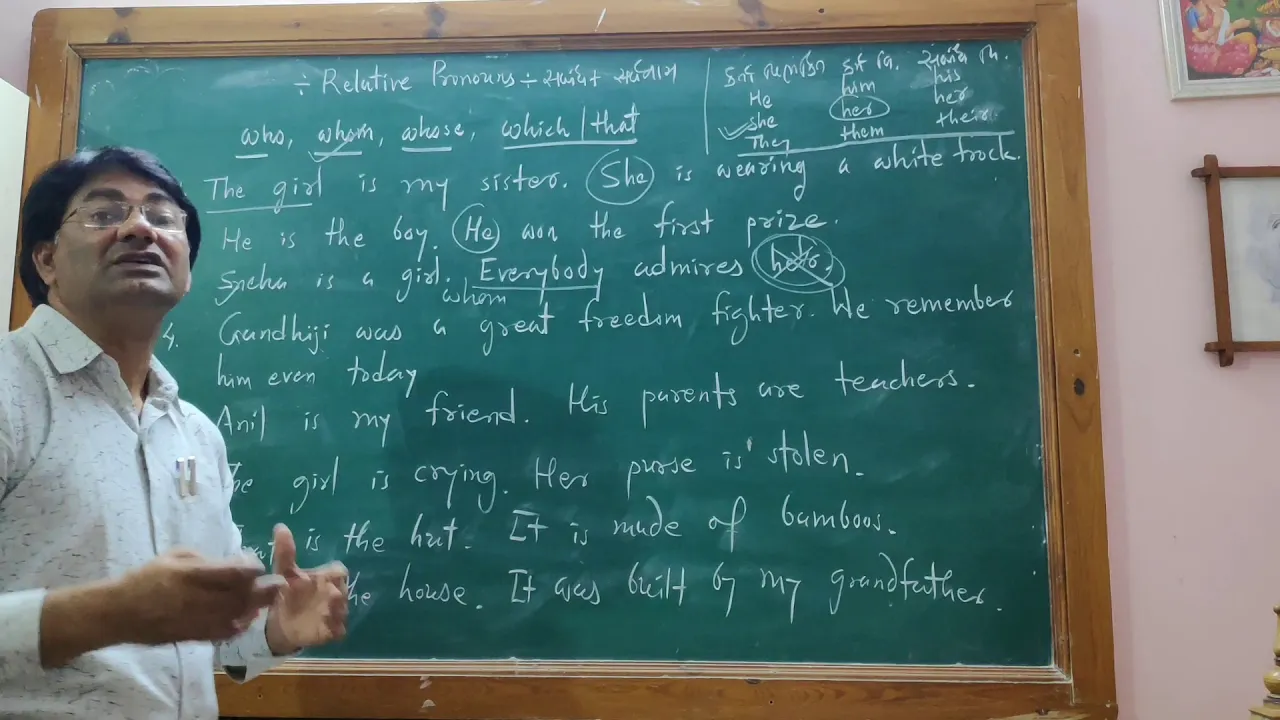 ÷ Relative Pronouns ÷ સર્વનામ
who, whom, whose, which / that
He him his
She her her
They them their
The girl is my sister. She is wearing a white frock.
He is the boy. He won the first prize.
Sneha is a girl. Everybody admires her.
whom
4. Gandhiji was a great freedom fighter. We remember
him even today
Anil is my friend. His parents are teachers.
girl is crying. Her purse is stolen.
is the hut. It is made of bamboos.
the house. It was built by my grandfather.